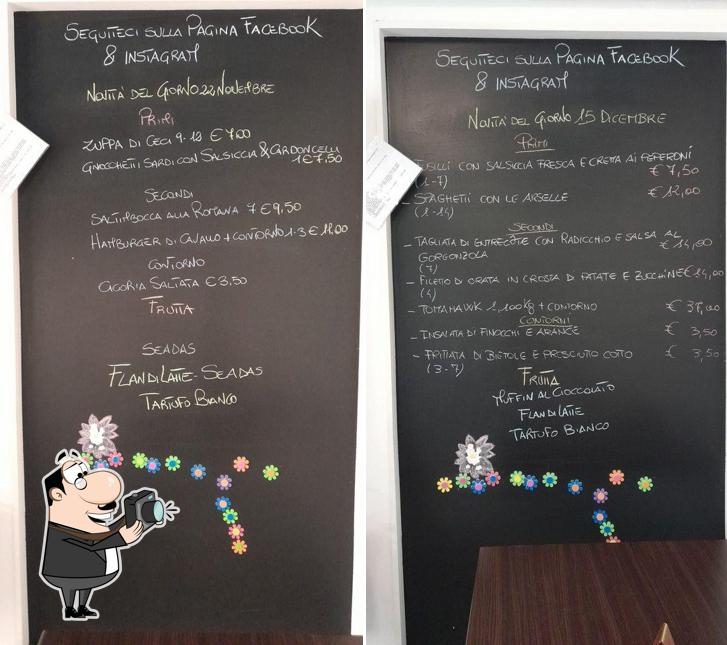 SEGUITECI SULLA PAGINA FACEBOOK
& INSTAGRAM
NOVITA' DEL GIORNO 22 NOVEMBRE
PRIMI
ZUPPA DI CECI 9-12 € 7,00
GNOCCHETTI SARDI CON SALSICCIA & CARDONCELLI
1 € 7,50
SECONDI
SALTIMBOCCA ALLA ROMANA 7 € 9,50
HAMBURGER DI CAVALLO + CONTORNO 1-3 € 11.00
CONTORNO
CICORIA SALTATA € 3,50
FRUTTA
SEADAS
FLAN DI LATTE - SEADAS
TARTUFO BIANCO
SEGUITECI SULLA PAGINA FACEBOOK
& INSTAGRAM
NOVITA' DEL GIORNO 15 DICEMBRE
PRIMI
FUSILLI CON SALSICCIA FRESCA E CREMA AI PEPERONI
(1-7) € 7,50
- SPAGHETTI CON LE ARSELLE € 12,00
(1-14)
SECONDI
- TAGLIATA DI ENTRECOTE CON RADICCHIO E SALSA AL
GORGONZOLA € 14,00
(7)
- FILETTO DI ORATA IN CROSTA DI PATATE E ZUCCHINE € 14,00
(4)
- TOMAHAWK 1,100 Kg + CONTORNO €
CONTORNI
- INSALATA DI FINOCCHI E ARANCE € 3,50
- FRITTATA DI BIETOLE E PROSCIUTTO COTTO € 3,50
(3-7)
FRUTTA
MUFFIN AL CIOCCOLATO
FLAN DI LATTE
TARTUFO BIANCO